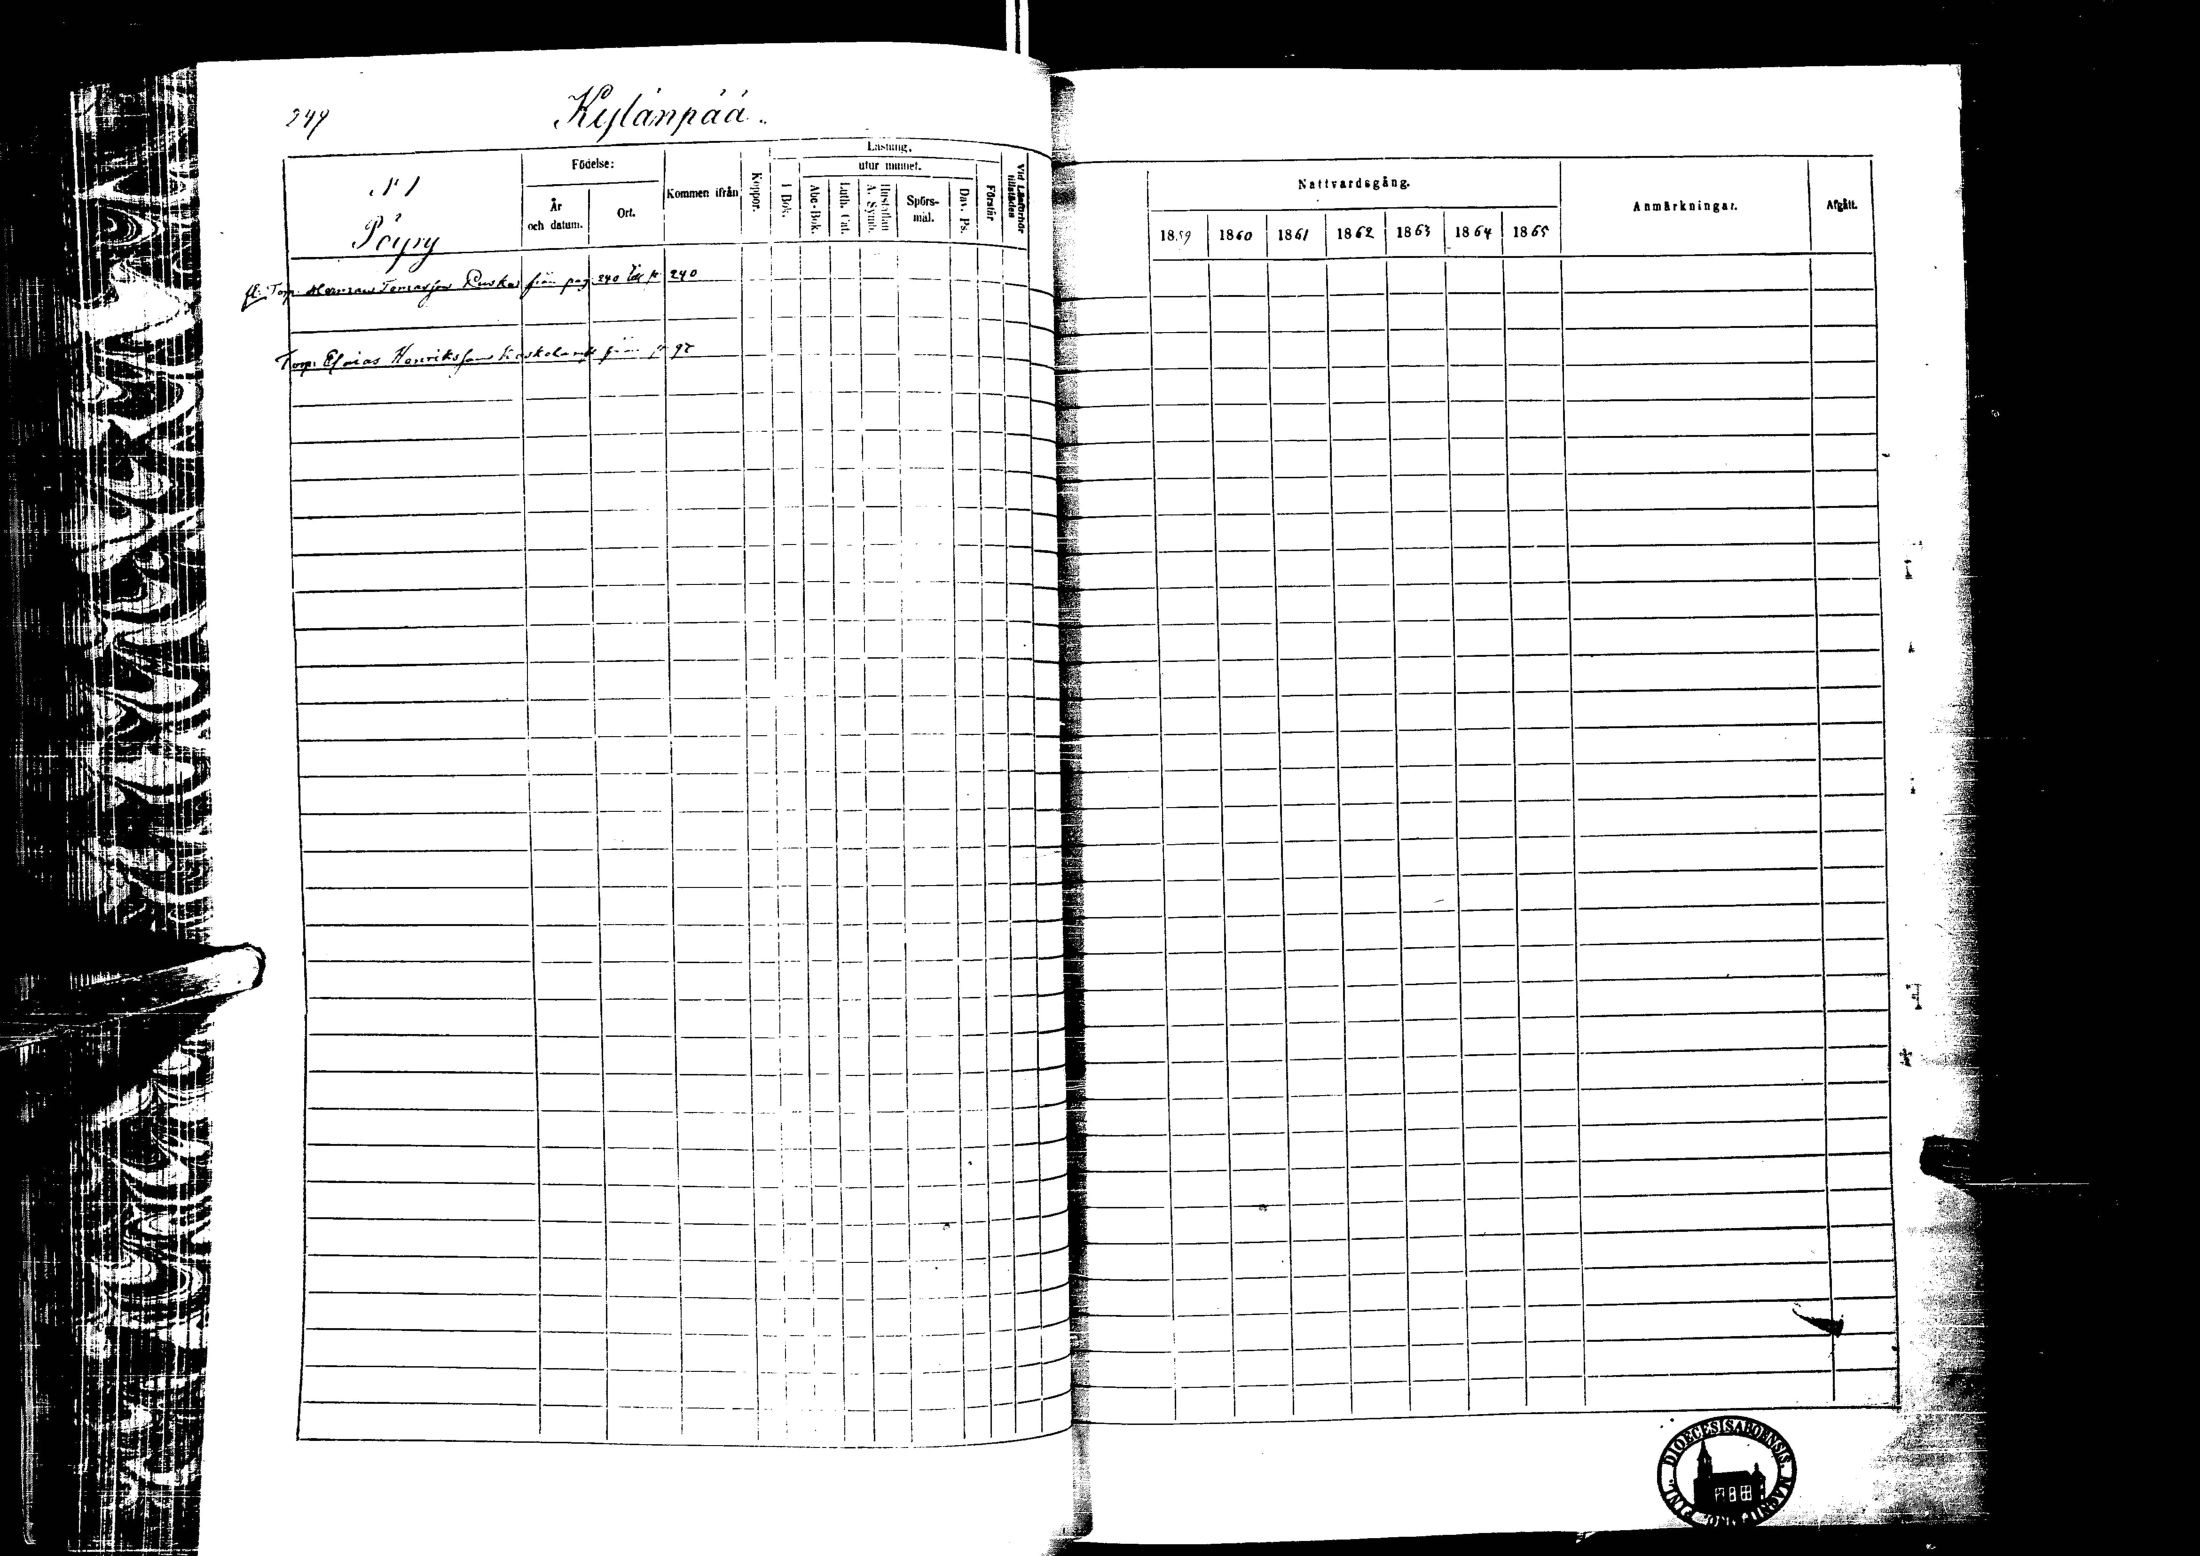 249
Kylänpää.
Läsning.
N 1
Pöyry
Födelse:
År och datum.
Ort.
Kommen ifrån
Koppor.
I Bok.
utur minnet.
Abc-Bok.
Luth. Cat.
Hustaflan A. Symb.
Spörsmål.
Dav. Ps.
Förstår
Vid Läsförhör tillstädes
Nattvardsgång.
1859 1860 1861 1862 1863 1864 1865
Anmärkningar.
Afgått.
Torp. Herman från pag 240 till p. 240
Torp. Henriksson från p 97
DIOECESIS ABOENSIS.